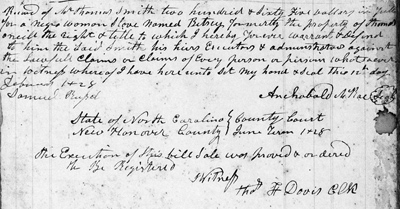 Recived of Mr Thomas Smith two hundred & Sixty Five dollars in full
for a Negro Woman Slave Named Betsey formerly the property of Thomas
oneill the right & title to which I hereby forever warrant & defend
to him the Said Smith his heirs Executors & administrators against
the lawfull Claims or Claims of Every person or person whatsoever
in Witness whereof I have hereunto Set My hand & Seal this 12th day
1828
Samuel
Archobald McRae
State of North Carolina County Court
New Hanover County June Term 1828
The Execution of this bill Sale was proved & ordered
to Be Registered
Witness
Thos H Davis Clk